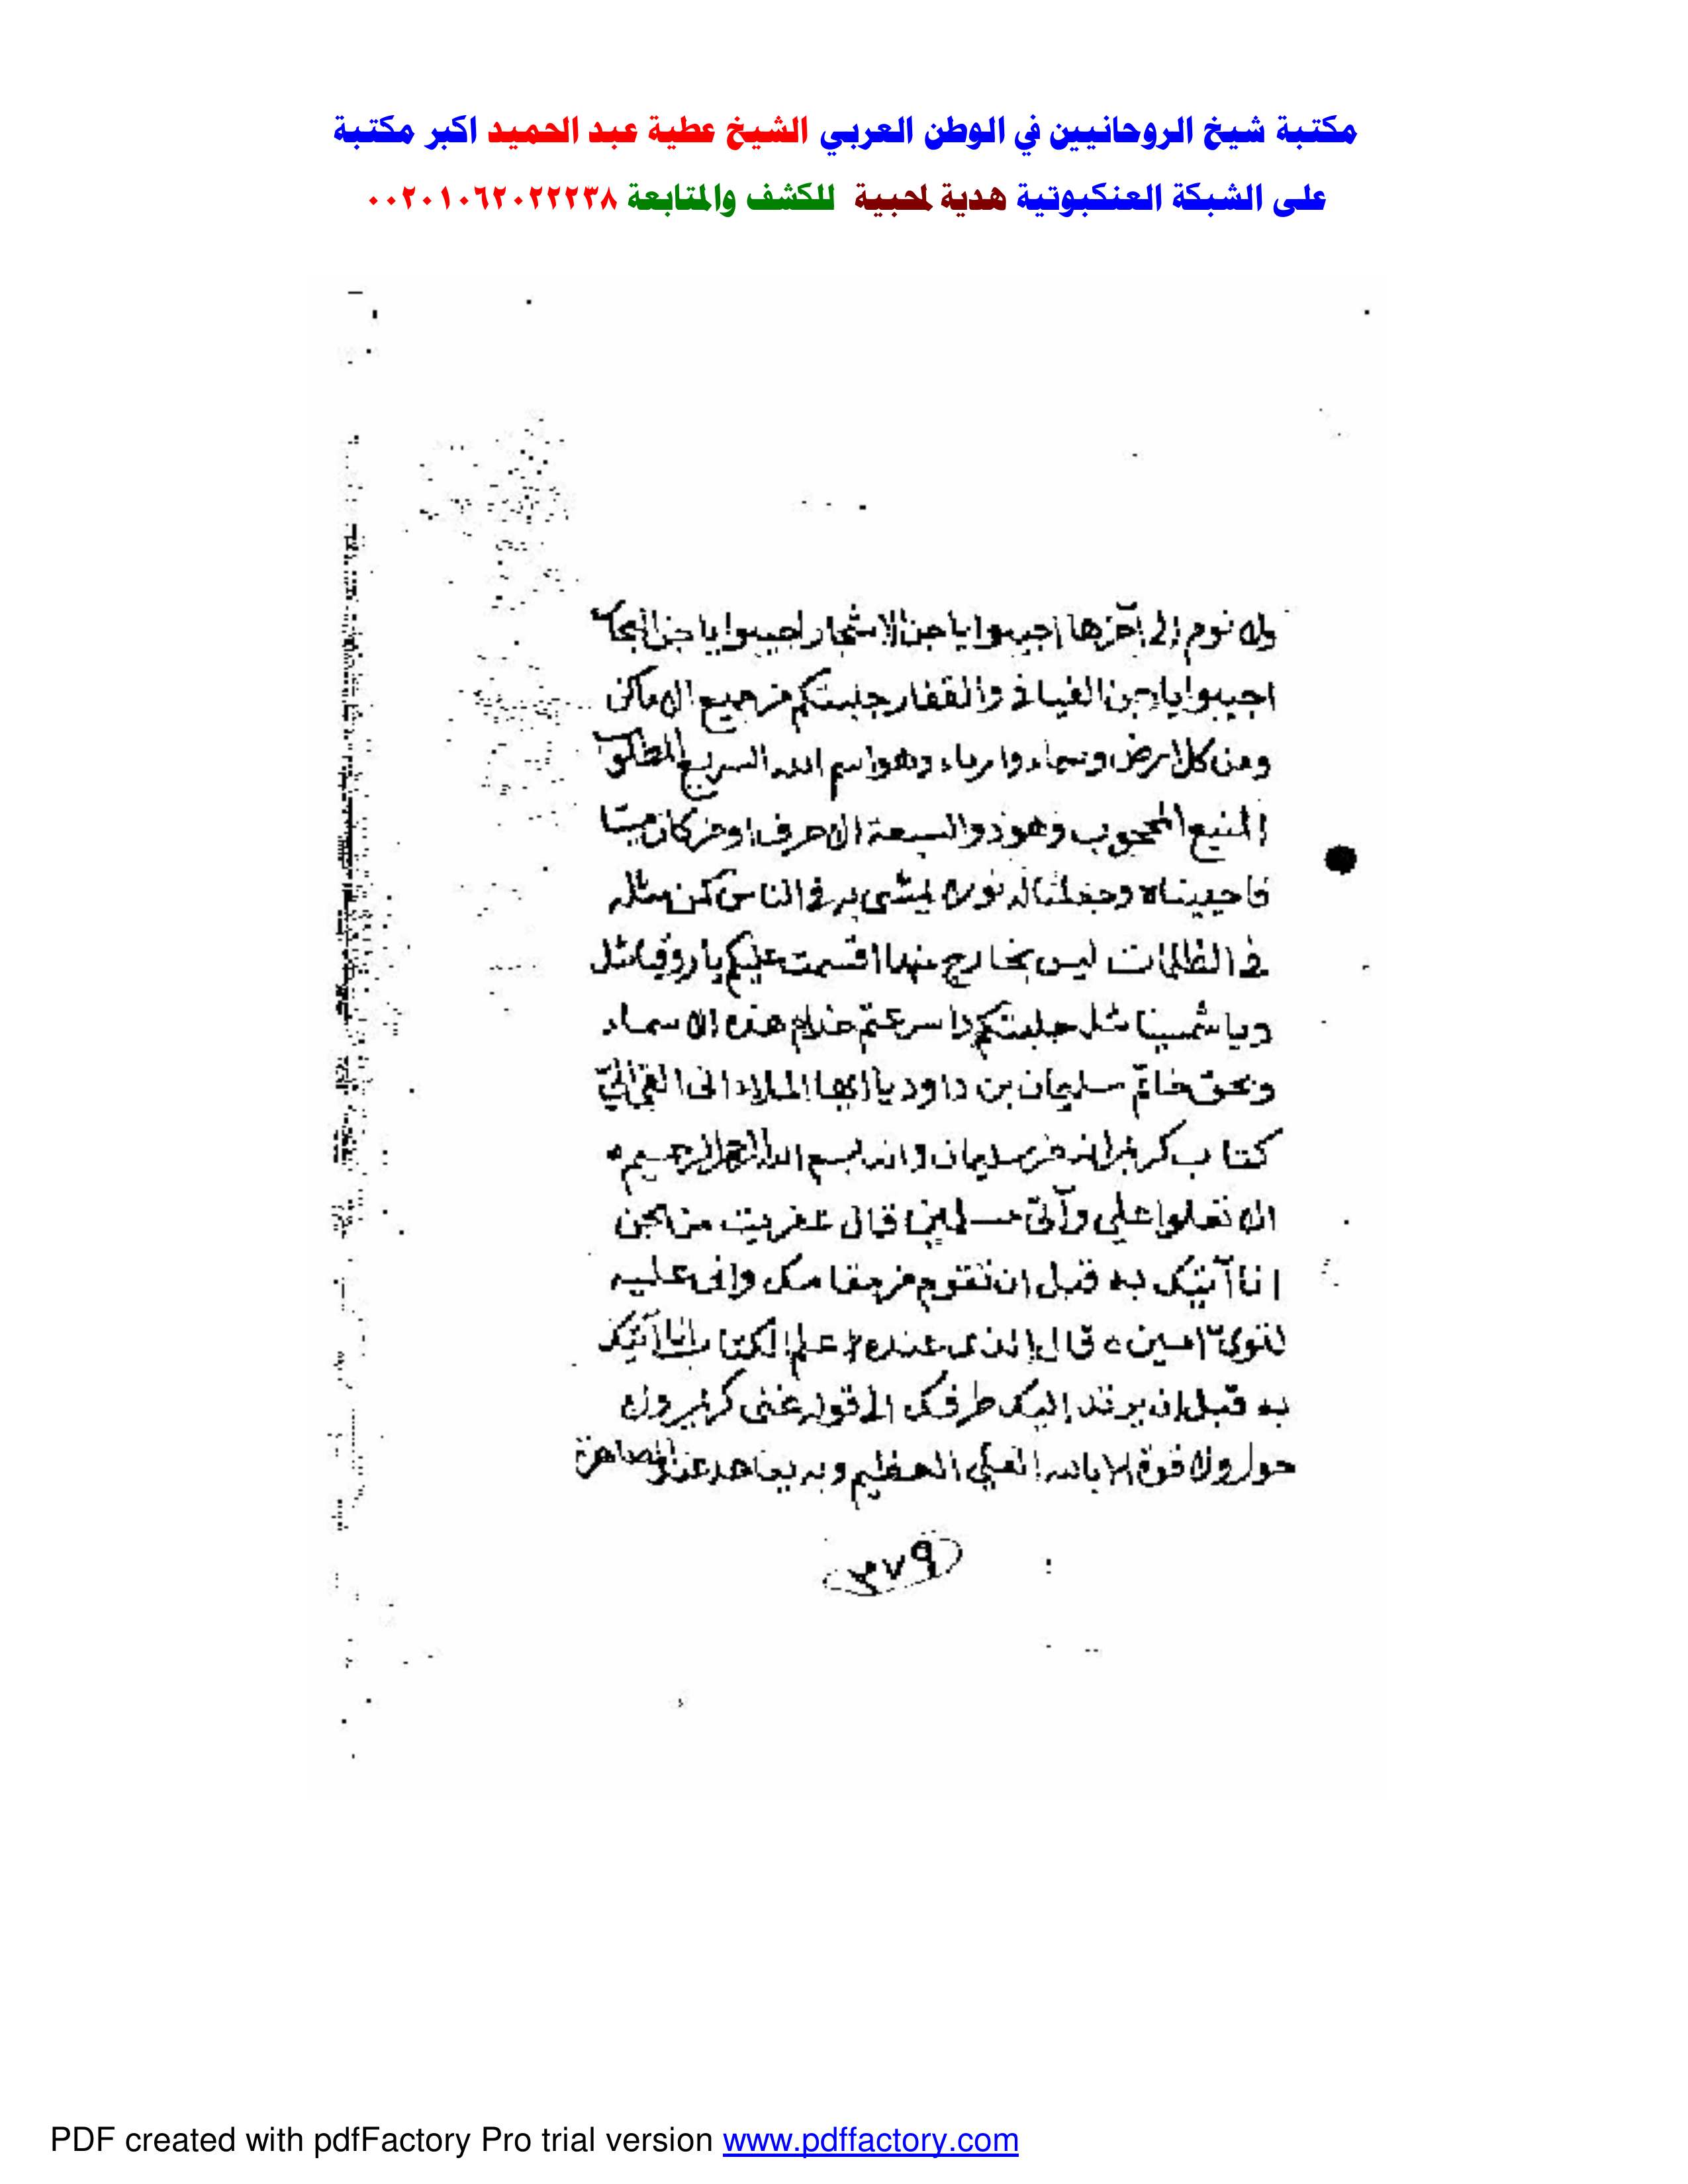 مكتبة شيخ الروحانيين في الوطن العربي الشيخ عطية عبد الحميد اكبر مكتبة
على الشبكة العنكبوتية هدية لمحبية للكشف والمتابعة ٠٠٢٠١٠٦٢٠٢٢٢٣٨
ولا نوم إلى آخرها اجيبوا يا جن الاشجار اجيبوا يا جن
اجيبوا يا جن الفيافى والقفار جلبتكم من جميع الاماكن
ومن كل ارض وسماء وهو اسم الله السريع المطلوب
المنيع المحجوب وهو ذو السبعة الاحرف اومن كان ميتا
فاحييناه وجعلنا له نورا يمشى به فى الناس كمن مثله
فى الظلمات ليس بخارج منها اقسمت عليكم يا روقيائل
ويا جلبتكم خدام هذه الاسماء
وبحق خاتم سليمان بن داود يا ايها الملاء انى القى الىّ
كتاب كريم انه من سليمان وانه بسم الله الرحمن الرحيم ه
الا تعلوا على وآتونى مسلمين قال عفريت من الجن
انا آتيك به قبل ان تقوم من مقامك وانى عليه
لقوىّ امين ه قال الذى عنده علم الكتاب انا آتيك
به قبل ان يرتد إليك طرفك الى قوله غنى كريم ولا
حول ولا قوة الا بالله العلى العظيم وبه
٣٧٩
PDF created with pdfFactory Pro trial version www.pdffactory.com